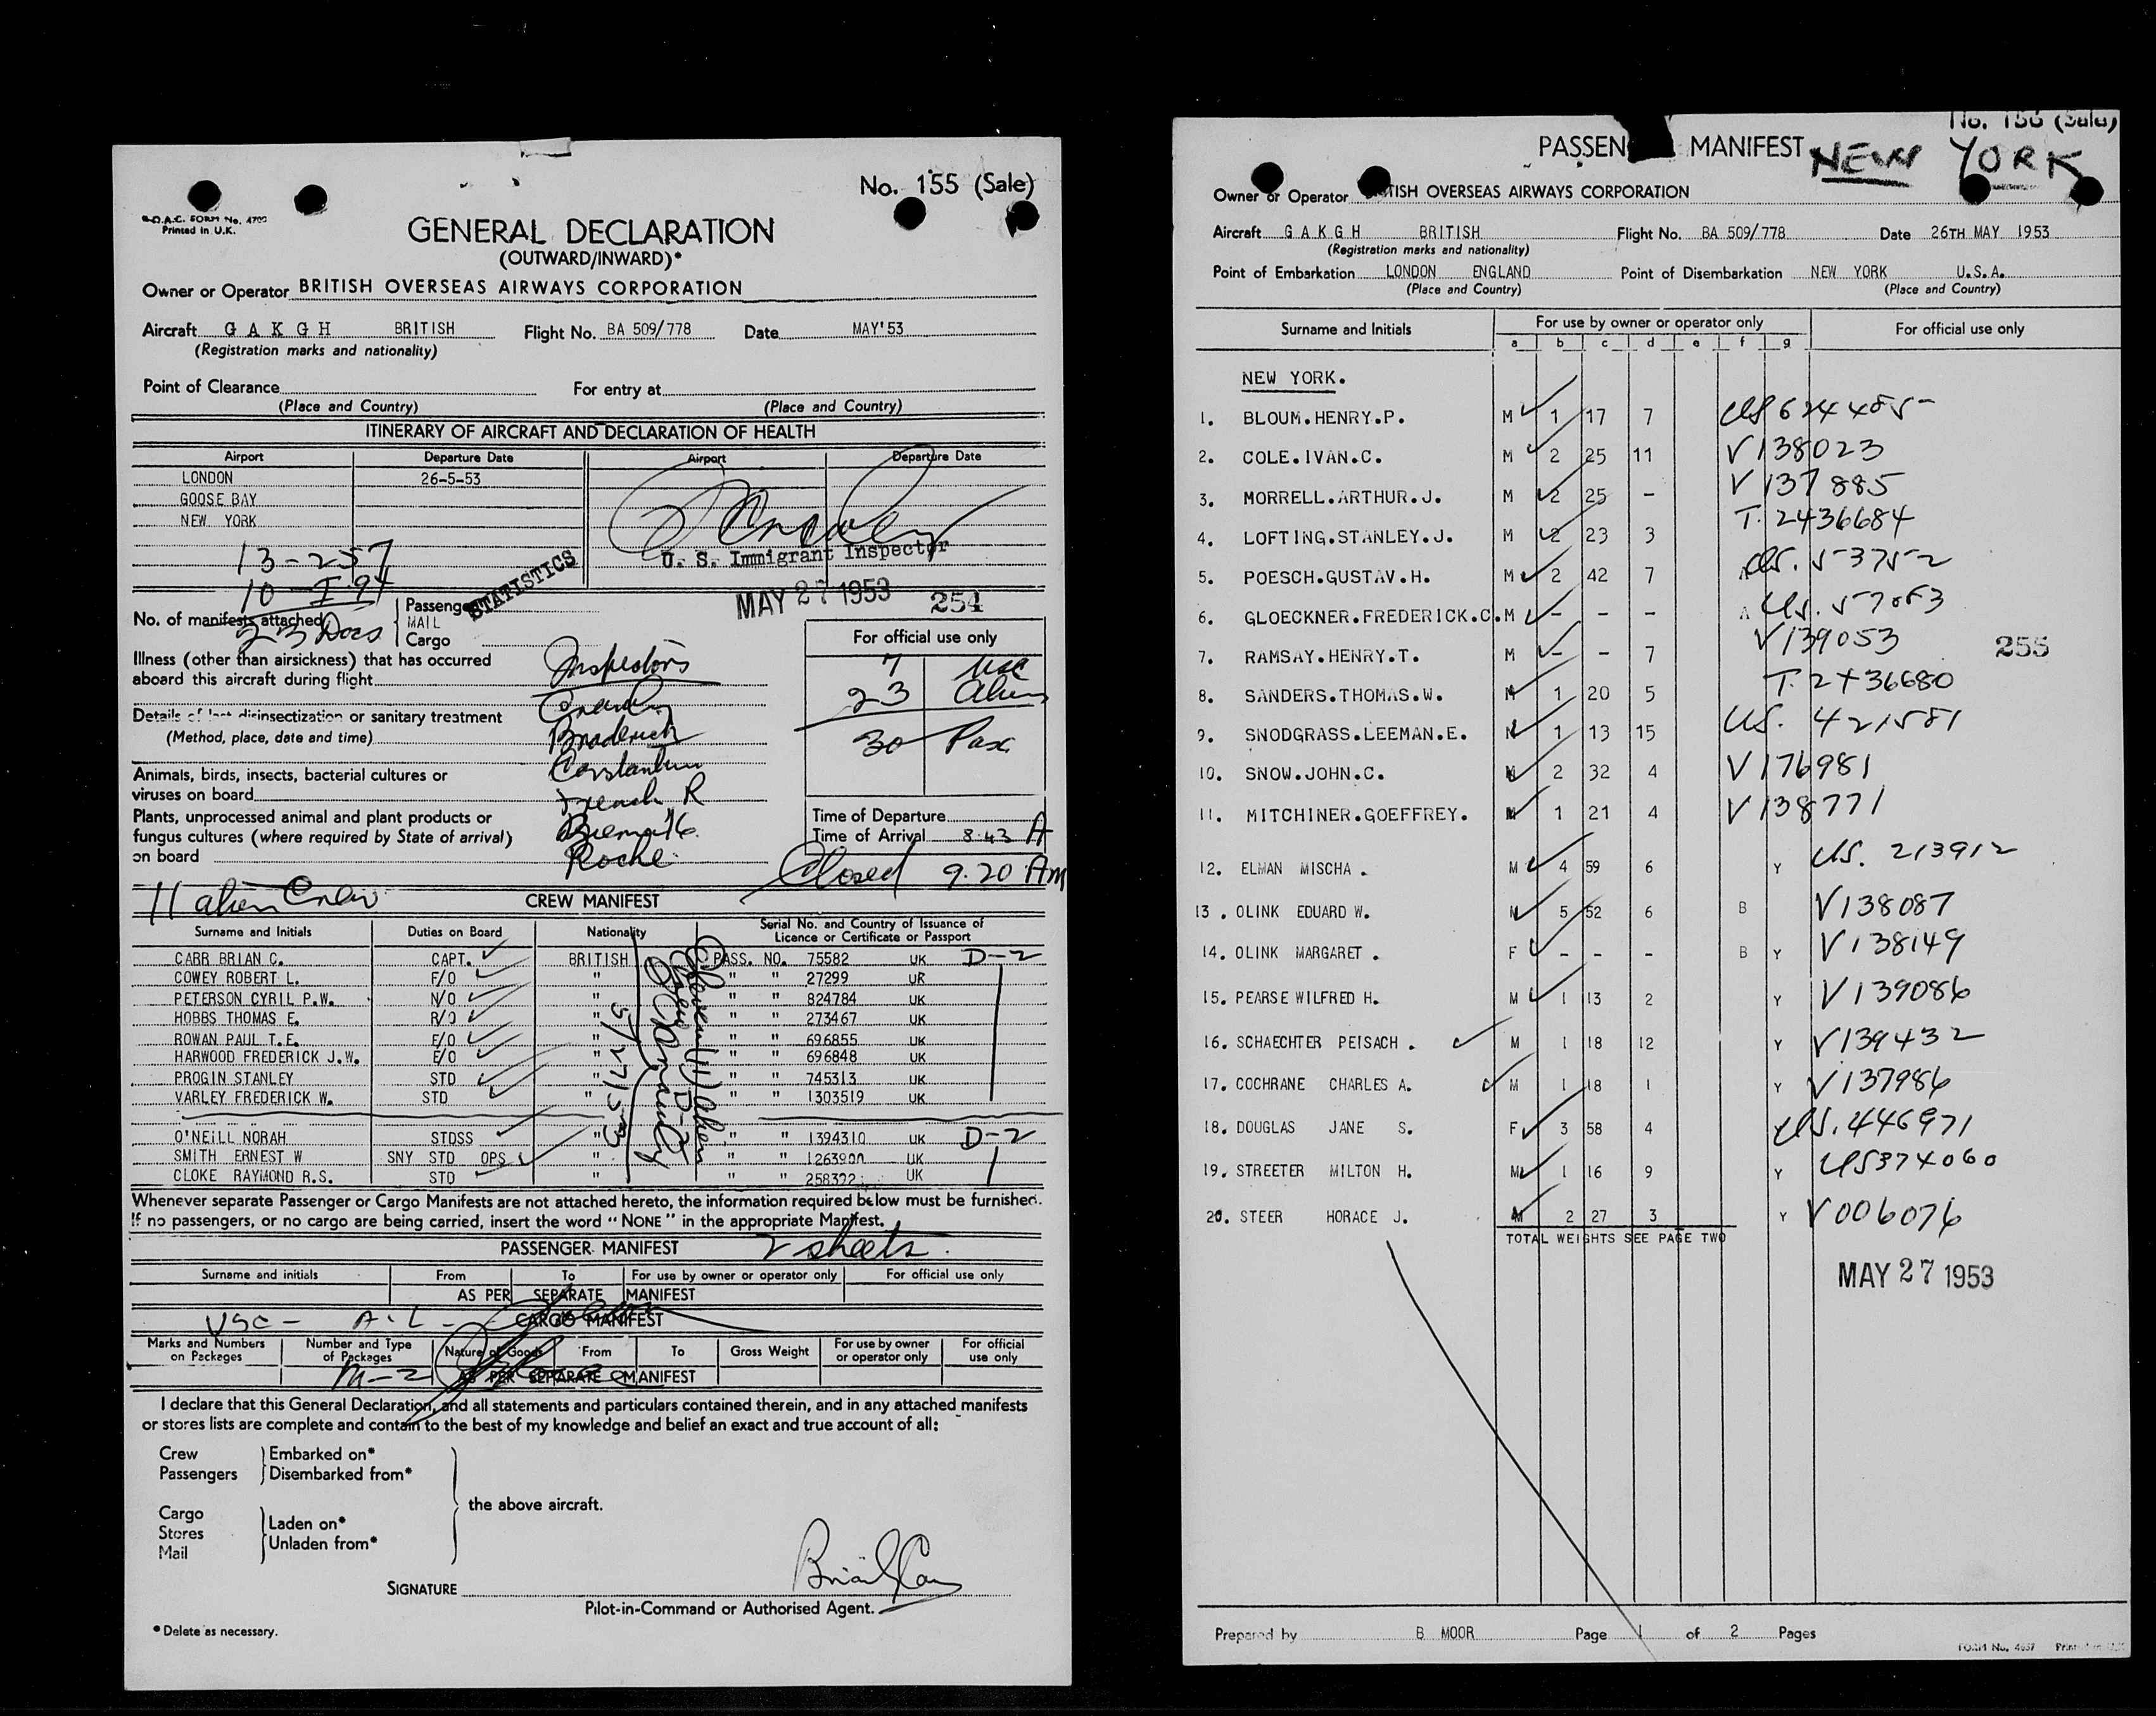 No. 155 (Sale)
B.O.A.C. FORM No. 4702
Printed in U.K.
GENERAL DECLARATION
(OUTWARD/INWARD)*
Owner or Operator BRITISH OVERSEAS AIRWAYS CORPORATION
Aircraft G A K G H BRITISH Flight No. BA 509/778 Date MAY'53
(Registration marks and nationality)
Point of Clearance For entry at
(Place and Country) (Place and Country)
ITINERARY OF AIRCRAFT AND DECLARATION OF HEALTH
Airport Departure Date Airport Departure Date
LONDON 26-5-53
GOOSE BAY
NEW YORK
13-257
U. S. Immigrant Inspector
10 - I 94
STATISTICS
MAY 27 1953 254
No. of manifests attached
23 Docs
Passenger
MAIL
Cargo
For official use only
7 USC
23 Alien
30 Pax
Illness (other than airsickness) that has occurred
aboard this aircraft during flight
Inspectors
Details of last disinsectization or sanitary treatment
(Method, place, date and time)
Broderick
Constantine
Animals, birds, insects, bacterial cultures or
viruses on board
French R
Plants, unprocessed animal and plant products or
fungus cultures (where required by State of arrival)
on board
Roche
Time of Departure
Time of Arrival 8.43 A
Closed 9.20 AM
11 alien Crew
CREW MANIFEST
Surname and Initials Duties on Board Nationality Serial No. and Country of Issuance of
Licence or Certificate or Passport
CARR BRIAN C. CAPT. BRITISH PASS. NO. 75582 UK D-2
COWEY ROBERT L. F/O " " " 27299 UK
PETERSON CYRIL P.W. N/O " " " 824784 UK
HOBBS THOMAS E. R/O " " " 273467 UK
ROWAN PAUL T.E. E/O " " " 696855 UK
HARWOOD FREDERICK J.W. E/O " " " 696848 UK
PROGIN STANLEY STD " " " 745313 UK
VARLEY FREDERICK W. STD " " " 1303519 UK
O'NEILL NORAH STDSS " " " 1394310 UK D-2
SMITH ERNEST W SNY STD OPS " " " 1263900 UK
CLOKE RAYMOND R.S. STD " " " 258322 UK
5/27/53
Eleven (11) Alien
D-2
Whenever separate Passenger or Cargo Manifests are not attached hereto, the information required below must be furnished.
If no passengers, or no cargo are being carried, insert the word "NONE" in the appropriate Manifest.
PASSENGER MANIFEST 2 sheets.
Surname and initials From To For use by owner or operator only For official use only
AS PER SEPARATE MANIFEST
USC - A-L -
CARGO MANIFEST
Marks and Numbers on Packages Number and Type of Packages Nature of Goods From To Gross Weight For use by owner or operator only For official use only
M-2
AS PER SEPARATE MANIFEST
I declare that this General Declaration, and all statements and particulars contained therein, and in any attached manifests
or stores lists are complete and contain to the best of my knowledge and belief an exact and true account of all:
Crew Embarked on*
Passengers Disembarked from*
the above aircraft.
Cargo
Stores Laden on*
Mail Unladen from*
SIGNATURE
Pilot-in-Command or Authorised Agent.
* Delete as necessary.
No. 155 (Sale)
PASSEN MANIFEST NEW YORK
Owner or Operator TISH OVERSEAS AIRWAYS CORPORATION
Aircraft G A K G H BRITISH Flight No. BA 509/778 Date 26TH MAY 1953
(Registration marks and nationality)
Point of Embarkation LONDON ENGLAND Point of Disembarkation NEW YORK U.S.A.
(Place and Country) (Place and Country)
Surname and Initials For use by owner or operator only For official use only
a b c d e f g
NEW YORK.
1. BLOUM.HENRY.P. M 1 17 7
2. COLE.IVAN.C. M 2 25 11 V138023
3. MORRELL.ARTHUR.J. M 2 25 - V137885
4. LOFTING.STANLEY.J. M 2 23 3 T. 2436684
5. POESCH.GUSTAV.H. M 2 42 7 A US. 53752
6. GLOECKNER.FREDERICK.C. M - - - A
7. RAMSAY.HENRY.T. M - - 7 V139053
255
8. SANDERS.THOMAS.W. M 1 20 5 T. 2436680
9. SNODGRASS.LEEMAN.E. M 1 13 15 US. 421581
10. SNOW.JOHN.C. M 2 32 4 V176981
11. MITCHINER.GOEFFREY. M 1 21 4 V138771
12. ELMAN MISCHA . M 4 59 6 Y US. 213912
13 . OLINK EDUARD W. M 5 52 6 B V138087
14. OLINK MARGARET . F - - - B Y V138149
15. PEARSE WILFRED H. M 1 13 2 Y V139086
16. SCHAECHTER PEISACH . M 1 18 12 Y V139432
17. COCHRANE CHARLES A. M 1 18 1 Y V137986
18. DOUGLAS JANE S. F 3 58 4 Y US. 446971
19. STREETER MILTON H. M 1 16 9 Y US374060
20. STEER HORACE J. M 2 27 3 Y V006076
TOTAL WEIGHTS SEE PAGE TWO
MAY 27 1953
Prepared by B MOOR Page 1 of 2 Pages
FORM No. 4657